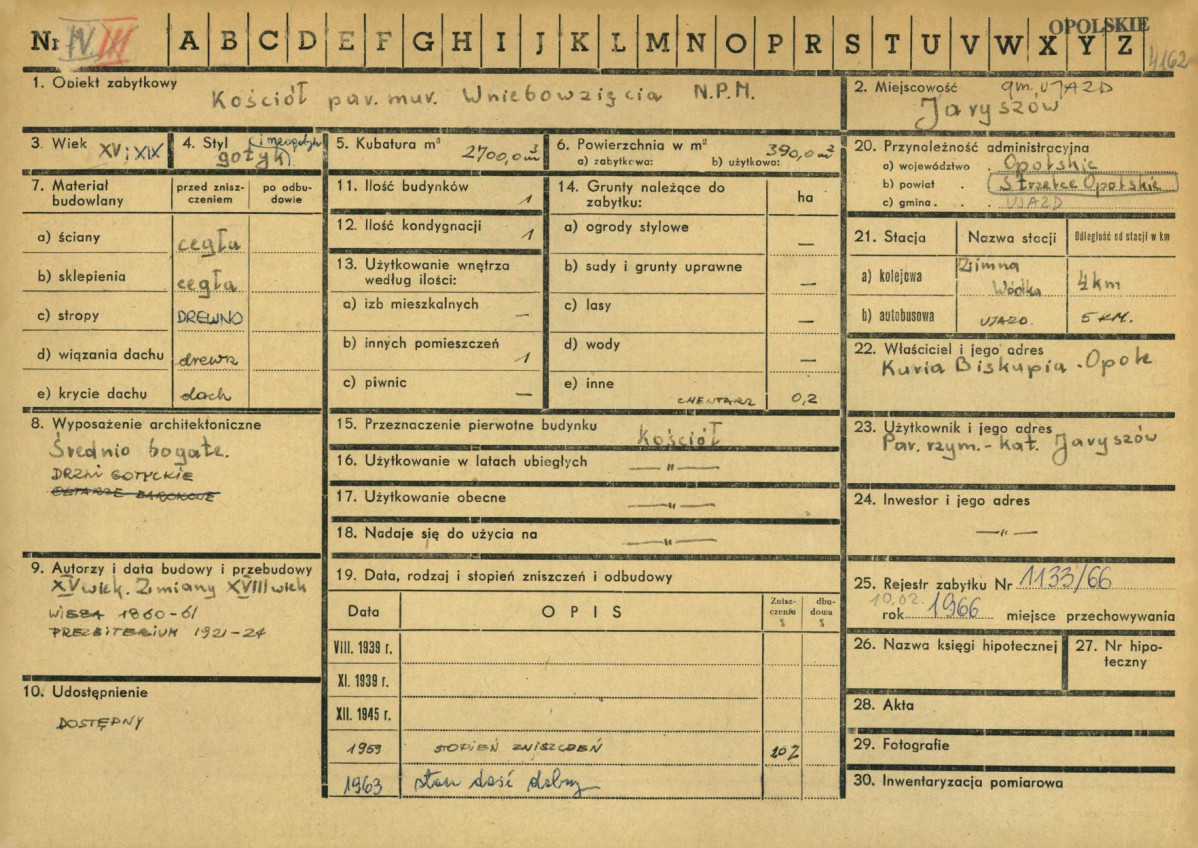 OPOLSKIE
Nr IV III A B C D E F G H I J K L M N O P R S T U V W X Y Z
4162
1. Obiekt zabytkowy
Kościół par. mur. Wniebowzięcia N.P.M.
2. Miejscowość gm. UJAZD
Jaryszów
3. Wiek XV i XIX
4. Styl i neogotyk
gotyk
5. Kubatura m³
2700,0 m³
6. Powierzchnia w m²
a) zabytkowa: b) użytkowa:
390,0 m²
20. Przynależność administracyjna
a) województwo Opolskie
b) powiat Strzelce Opolskie
c) gmina UJAZD
7. Materiał budowlany
przed zniszczeniem
po odbudowie
a) ściany cegła
b) sklepienia cegła
c) stropy DREWNO
d) wiązania dachu drewn
e) krycie dachu dach
11. Ilość budynków 1
12. Ilość kondygnacji 1
13. Użytkowanie wnętrza
według ilości:
a) izb mieszkalnych –
b) innych pomieszczeń 1
c) piwnic –
14. Grunty należące do
zabytku:
ha
a) ogrody stylowe –
b) sady i grunty uprawne –
c) lasy –
d) wody –
e) inne
CMENTARZ 0,2
21. Stacja Nazwa stacji Odległość od stacji w km
a) kolejowa Zimna
Wódka 4 km
b) autobusowa UJAZD. 5 KM.
22. Właściciel i jego adres
Kuria Biskupia - Opole
8. Wyposażenie architektoniczne
Średnio bogate.
DRZWI GOTYCKIE
OŁTARZE BAROKOWE
15. Przeznaczenie pierwotne budynku
Kościół
16. Użytkowanie w latach ubiegłych
—"—
17. Użytkowanie obecne
—"—
18. Nadaje się do użycia na
—"—
23. Użytkownik i jego adres
Par. rzym.-kat. Jaryszów
24. Inwestor i jego adres
—"—
9. Autorzy i data budowy i przebudowy
XV wiek. Zmiany XVIII wiek
WIEŻA 1860-61
PREZBITERIUM 1921-24
10. Udostępnienie
DOSTĘPNY
19. Data, rodzaj i stopień zniszczeń i odbudowy
Data OPIS Zniszczenia % dbudowa %
VIII. 1939 r.
XI. 1939 r.
XII. 1945 r.
1959 STOPIEŃ ZNISZCZEŃ 20%
1963 stan dość dobry
25. Rejestr zabytku Nr 1133/66
10.02.
rok 1966 miejsce przechowywania
26. Nazwa księgi hipotecznej
27. Nr hipoteczny
28. Akta
29. Fotografie
30. Inwentaryzacja pomiarowa